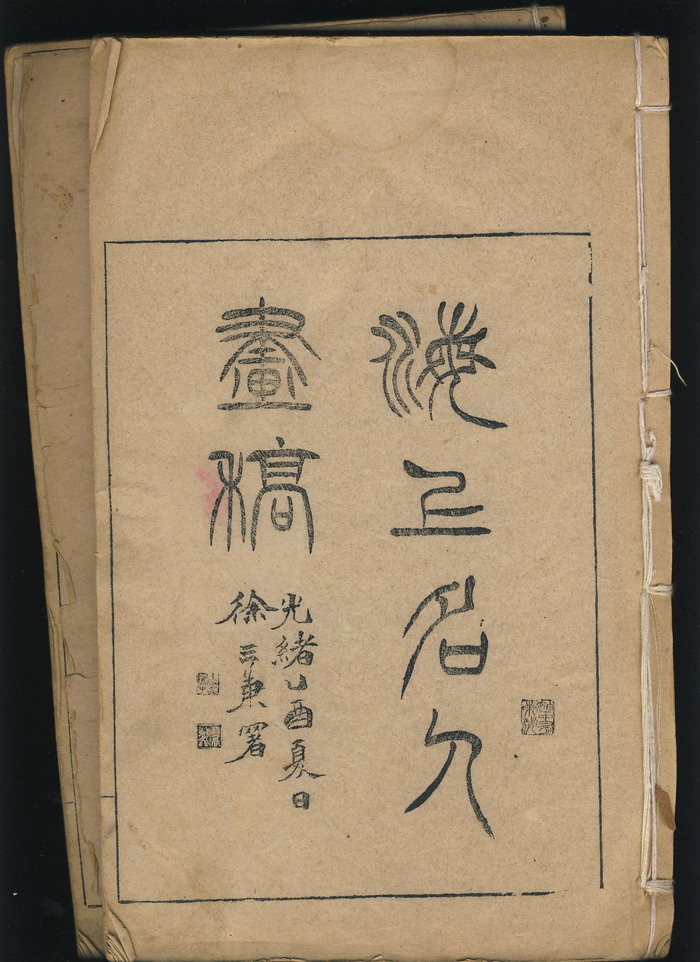 海上名人
畫稿
光緒乙酉夏日
徐三庚署